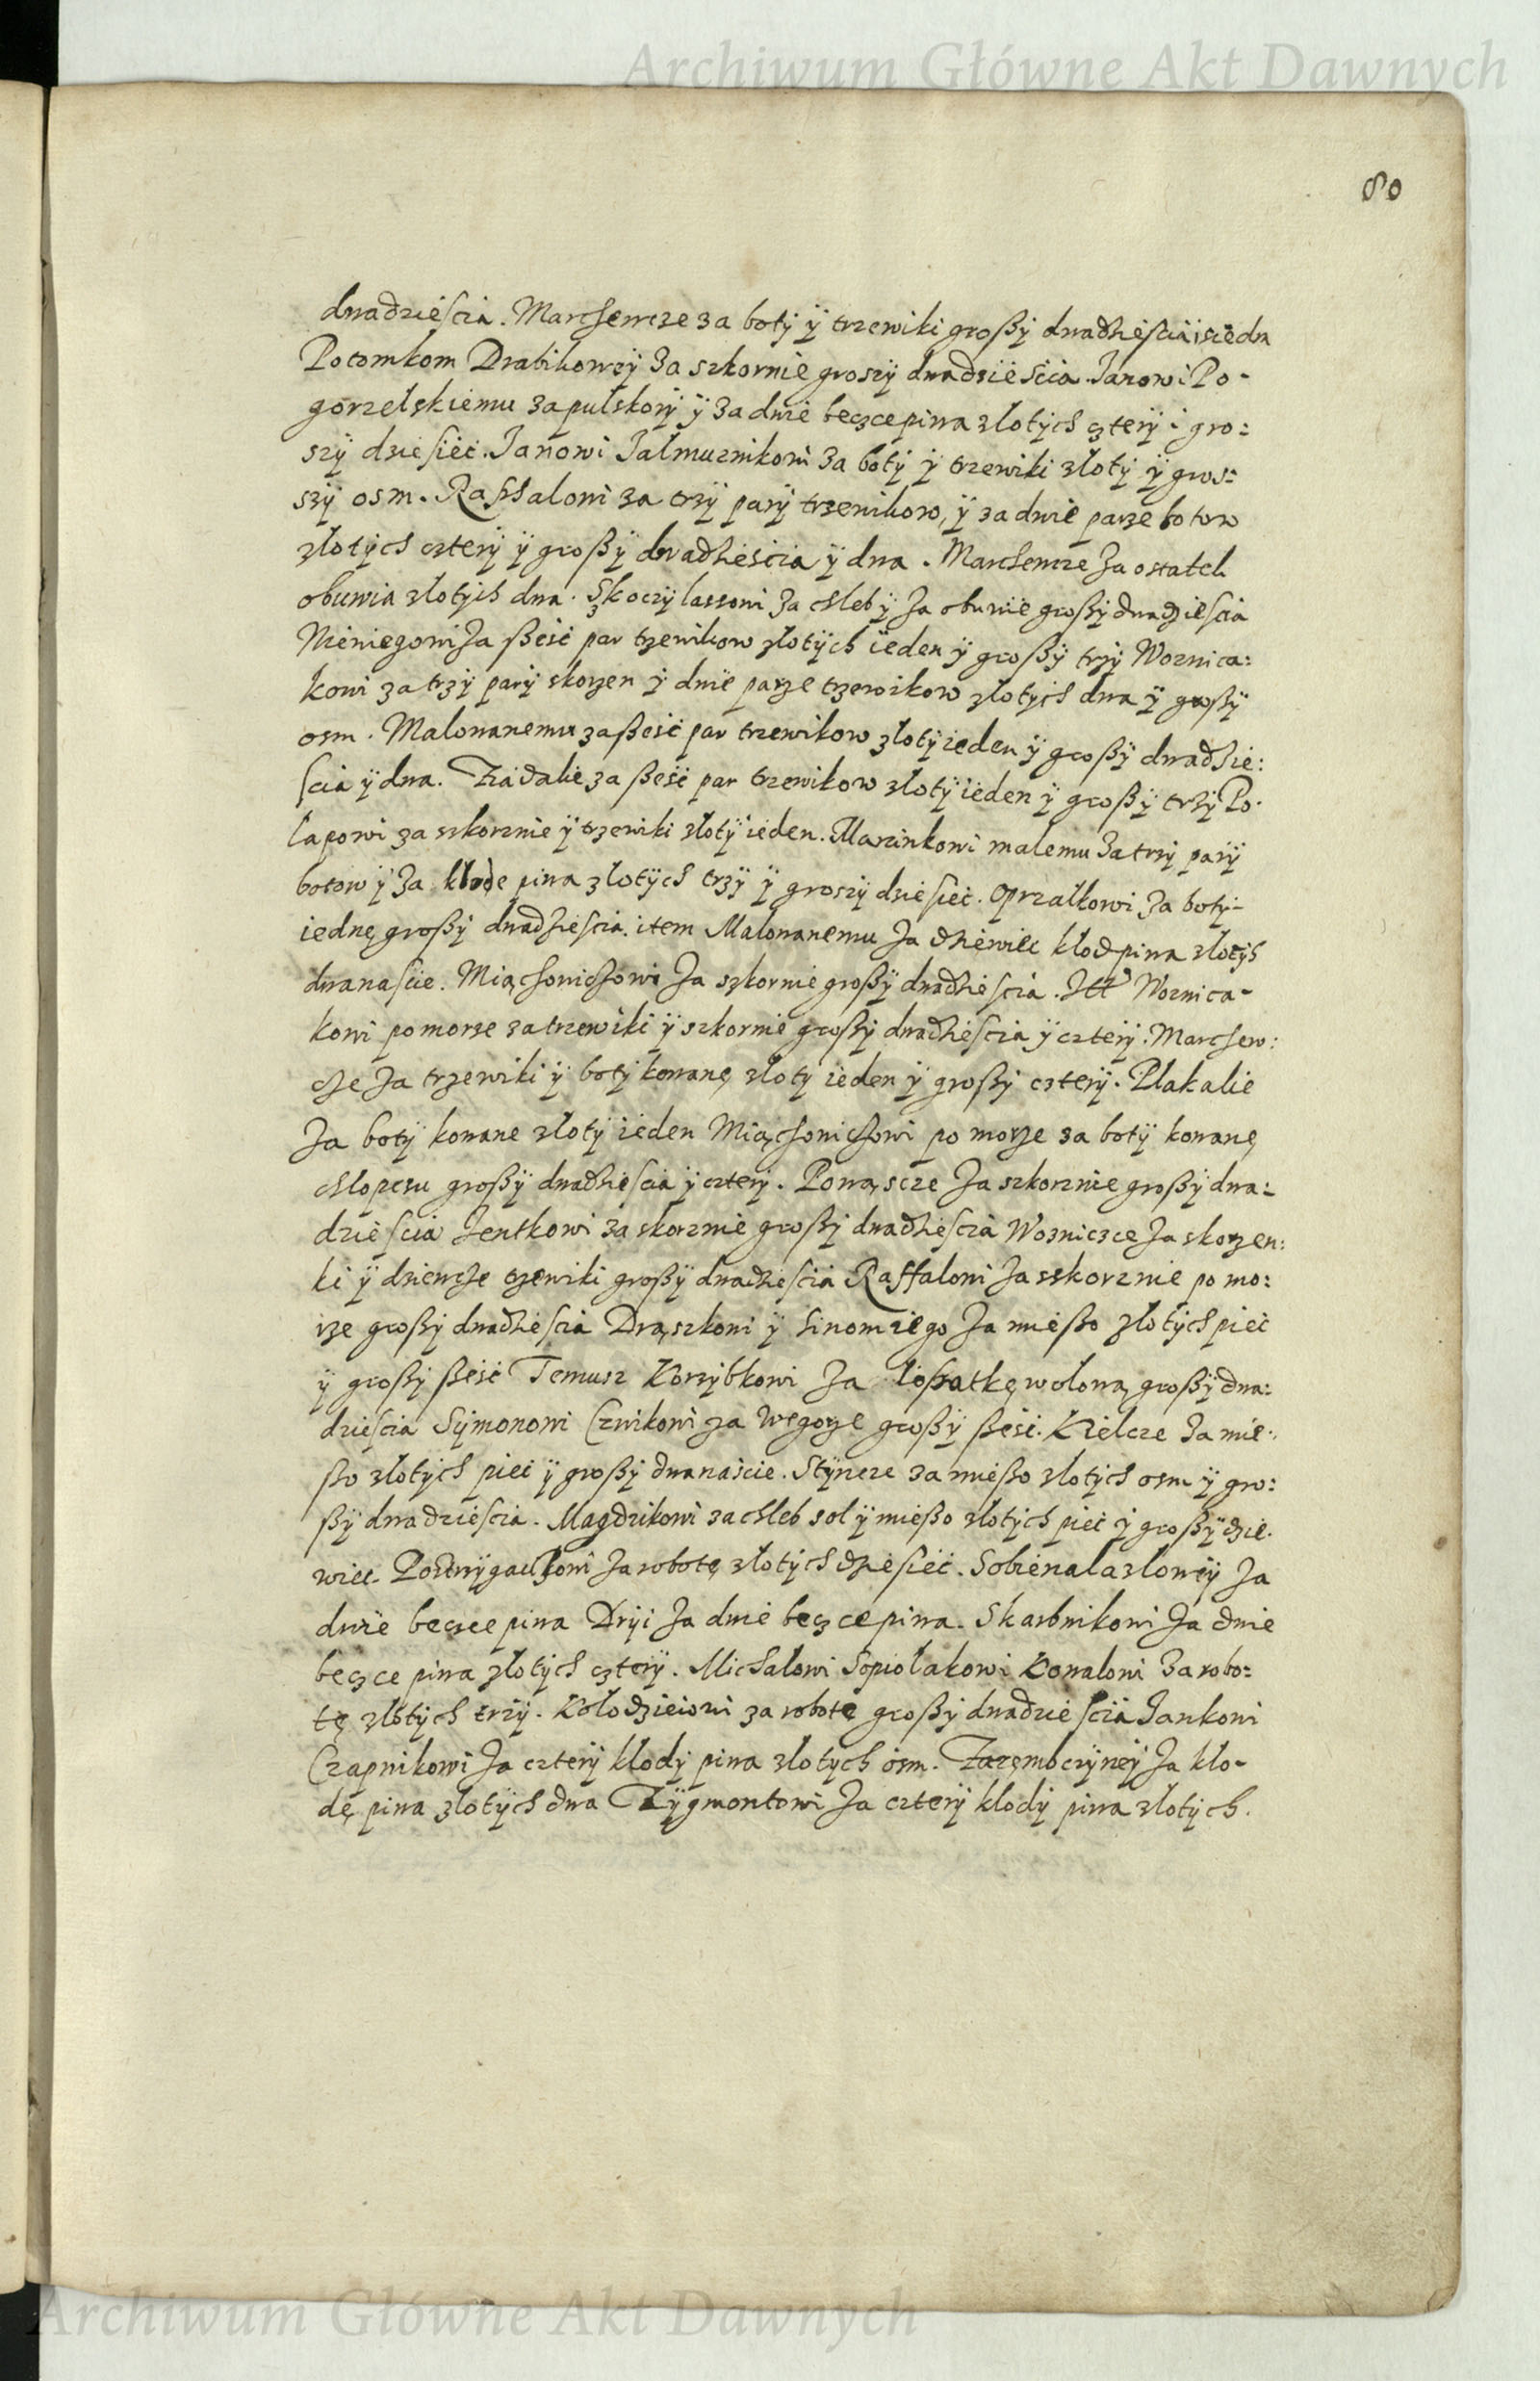 Archiwum Główne Akt Dawnych
80
dwadzieścia. Marchewcze za boty ÿ trzewiki großÿ dwadzieścia i iedn
Potomkom Drabikowzÿ za szkornie groszÿ dwadzieścia. Janowi Po-
gorzelskiemu za pulskorÿ ÿ za dwie beczce piwa złotÿch czterÿ i gro:
szÿ dziesięć. Janowi Jalmuznikowi za botÿ ÿ trzewiki złotÿ ÿ gros:
szÿ osm. Raphalowi za trzÿ parÿ trzewikow, ÿ za dwie parze botow
złotÿch czterÿ ÿ großÿ dwadzieścia ÿ dwa. Marchewcze za ostatek
obuwia złotÿch dwa. Skoczÿlassowi za chleb ÿ za obuwie großÿ dwadzieścia
Mieniegowi za ßeść par trzewikow złotÿch ieden ÿ großÿ trzÿ Woznica:
kowi za trzÿ parÿ skorzen ÿ dwie parze trzewikow złotÿch dwa ÿ großÿ
osm. Malowanemu za ßeść par trzewikow złotÿ ieden ÿ großÿ dwadzie:
ścia ÿ dwa. Ziadalie za ßeść par trzewikow złotÿ ieden ÿ großÿ trzÿ Po-
lapowi za szkorznie ÿ trzewiki złotÿ ieden. Marzinkowi malemu za trzÿ parÿ
botow ÿ za kłodę piwa złotÿch trzÿ ÿ groszÿ dziesięć. Oprzalkowi za botÿ-
iednę großÿ dwadzieścia. item Malowanemu za dziewięc kłod piwa złotÿch
dwanaście. Miąchowichowi za szkornie großÿ dwadzieścia. Itē Woznica-
kowi pomorze za trzewiki ÿ szkornie großÿ dwadzieścia ÿ czterÿ. Marchew:
cze za trzewiki ÿ botÿ kowanę złotÿ ieden ÿ großÿ czterÿ. Plakalie
za botÿ kowane złotÿ ieden Miąchowichowi po morze za botÿ kowanę
chłopcsu großÿ dwadzieścia ÿ czterÿ. Powąscze za szkorznie großÿ dwa:
dzieścia Jentkowi za skorznie großÿ dwadzieścia Wozniczce za skorzen:
ki ÿ dziewcze trzewiki großÿ dwadzieścia Raffalowi za szkorznie po mo:
rze großÿ dwadzieścia Drąszkowi ÿ Sinom iego za mießo złotÿch pięć
ÿ großÿ ßeść Temusz Korzÿbkowi za łopatkę wolową großÿ dwa:
dzieścia Sÿmonowi Czwikowi za Węgorze großÿ ßeść. Kzielcze za mię:
ßo złotÿch pięć ÿ großÿ dwanaście. Stÿncze za mießo złotÿch osm ÿ gro:
ßÿ dwadzieścia. Magdzikowi za chleb sol ÿ mießo złotÿch pięć ÿ großÿ dzie-
więc. za robotę złotÿch dziesięć. Sobienalaslowÿ za
dwie beczce piwa Drÿi za dwie beczce piwa. Skarbnikowi za dwie
beczce piwa złotÿch czterÿ. Michalowi Sopiolakowi Kowalowi za robo:
tę złotÿch trzÿ. Kołodzieiowi za robotę großÿ dwadzieścia Jankowi
Czapnikowi za czterÿ kłodÿ piwa złotych osm. Zarembczÿneÿ za kło-
dę piwa złotÿch dwa Zÿgmontowi za czterÿ kłodÿ piwa złotÿch.
Archiwum Główne Akt Dawnych